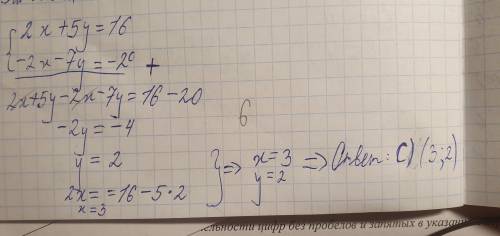 {2x+5y=16
-2x-7y=-20 +
2x+5y-2x-7y=16-20
-2y=-4
y=2
2x==16-5·2
x=3
} => x=3
y=2
=> Ответ: C) (3;2)
6
ельности цифр без пробелов и занятых в указан